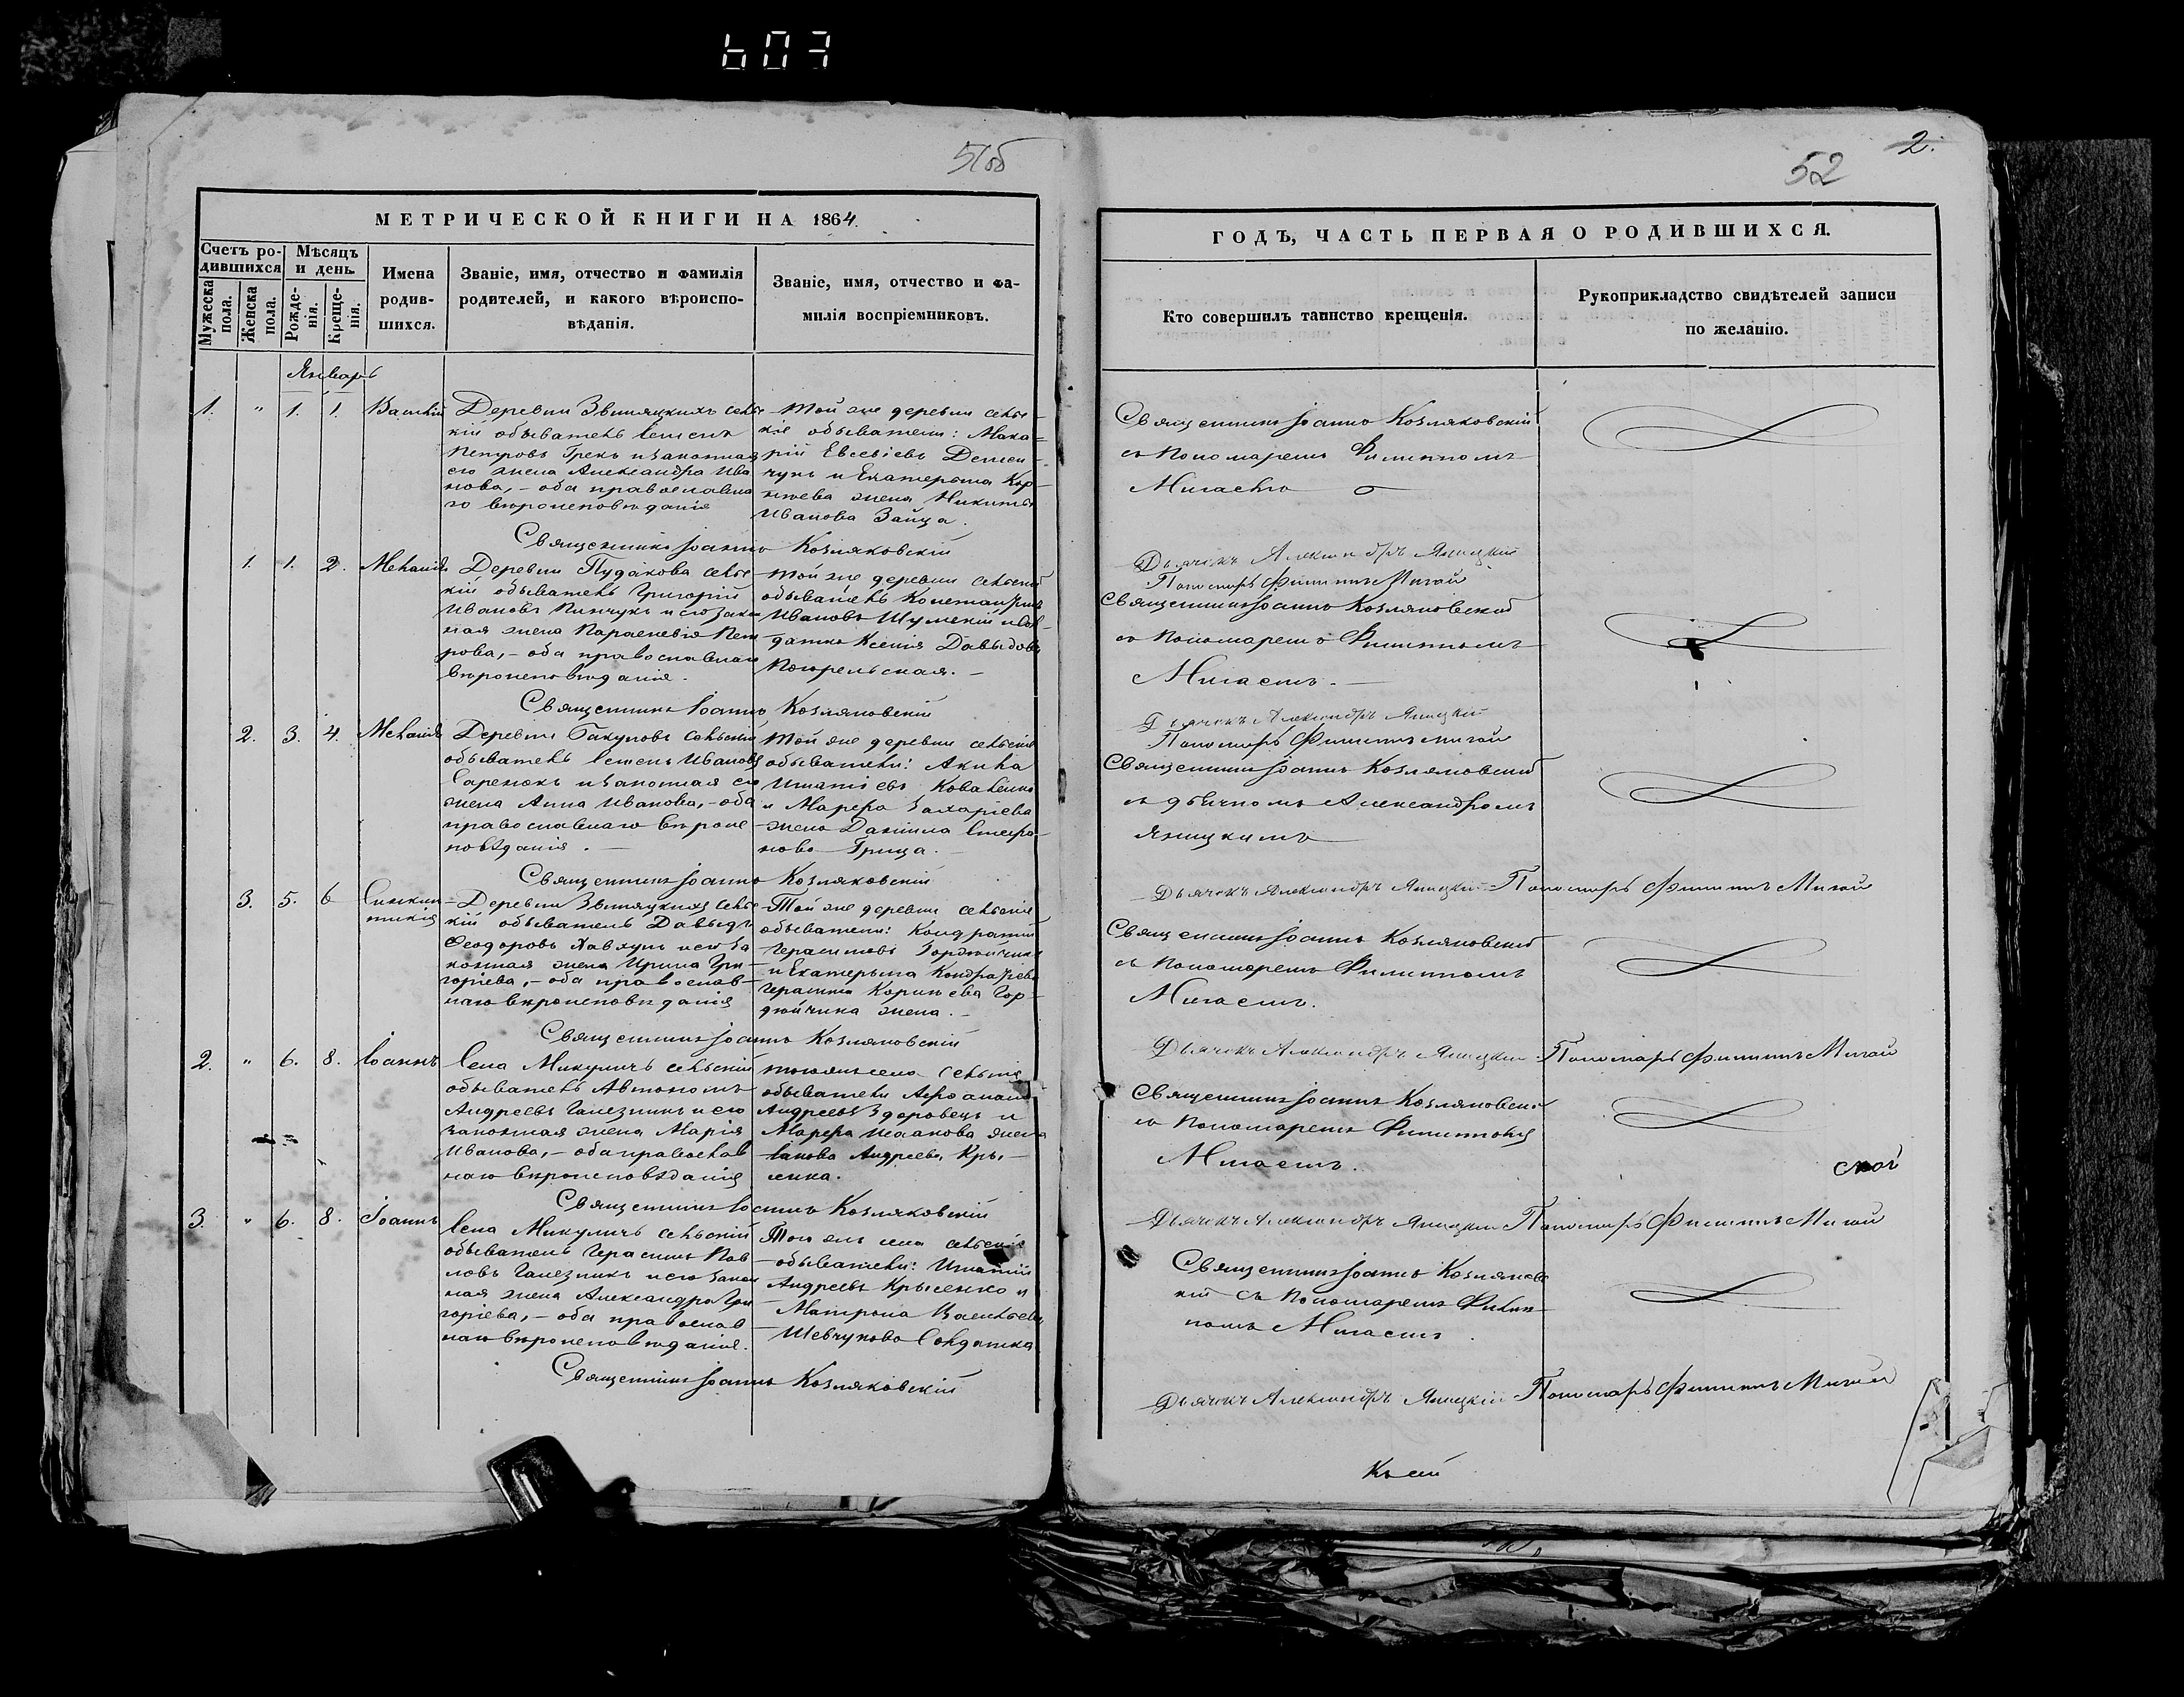 607
51об
МЕТРИЧЕСКОЙ КНИГИ НА 1864.
Счетъ ро-
дившихся
Мѣсяцъ
и день
Мужеска
пола.
Женска
пола.
Рожде-
нія.
Креще-
нія.
Имена
родив-
шихся.
Званіе, имя, отчество и фамилія
родителей, и какого вѣроиспо-
вѣданія.
Званіе, имя, отчество и фа-
милія воспріемниковъ.
Январь
1. " 1. 1. Василій
Деревни Звиняцкихъ сель
кій обыватель Семенъ
Петровъ Грекъ и законная
его жена Александра Ива
нова, – оба православна
го вѣроисповѣданія
Той же деревни сельс
кіе обыватели: Мака=
рій Евсевіевъ Демен
чукъ и Екатерина Кор
нѣева жена Никиты
Иванова Зайца.
Священникъ Іоаннъ Козляковскій
1. 1. 2. Меланія
Деревни Пудакова сельс
кій обыватель Григорій
Ивановъ Пинчукъ и его закон
ная жена Параскевія Пет
рова, – оба православнаго
вѣроисповѣданія.
Той же деревни сельскій
обыватель Константинъ
Ивановъ Шумскій и сол-
датка Ксенія Давыдова
Погорельская. –
Священникъ Іоаннъ Козляковскій
2. 3. 4. Меланія
Деревни Бакумовъ сельскій
обыватель Семенъ Ивановъ
и законная его
жена Анна Иванова, – оба
православнаго вѣроис
повѣданія. –
Той же деревни сельскіе
обыватели: Акила
Игнатіевъ Коваленко
и Марфа Захаріева
жена Даніила Стефа-
нова Грица.
Священникъ Іоаннъ Козляковскій
3. 5. 6 Синкли
тикія
Деревни Звиняцкихъ сельс
кій обыватель Давыдъ
Феодоровъ Хавхунъ и его за
конная жена Ирина Гри
горіева, – оба православ-
наго вѣроисповѣданія
Той же деревни сельскіе
обыватели: Кондратій
Герасимовъ Гордѣйчикъ
и Екатерина Кондратіева
Герасима Корнѣева Гор-
дѣйчика жена. –
Священникъ Іоаннъ Козляковскій
2. " 6. 8. Іоаннъ
Села Микуличъ сельскій
обыватель Автономъ
Андреевъ Галезникъ и его
законная жена Марія
Иванова, – оба православ
наго вѣроисповѣданія
того же села сельскіе
обыватели Афанасій
Андреевъ Здоровецъ и
Марфа жена
Іакова Андреева Кры-
сенка.
Священникъ Іоаннъ Козляковскій
3. " 6. 8. Іоаннъ
Села Микуличъ сельскій
обыватель Герасимъ Пав
ловъ Галезникъ и его закон
ная жена Александра Гри
горіева, – оба православ
наго вѣроисповѣданія.
Того же села сельскіе
обыватели: Игнатій
Андреевъ Крысенко и
Матрона Васильева
Шевчукова Солдатка
Священникъ Іоаннъ Козляковскій
2.
52
ГОДЪ, ЧАСТЬ ПЕРВАЯ О РОДИВШИХСЯ.
Кто совершилъ таинство крещенія.
Рукоприкладство свидѣтелей записи
по желанію.
Священникъ Іоаннъ Козляковскій
съ Пономаремъ Филиппомъ
Дьячокъ Александръ Яницкій
Пономарь Филиппъ Мигай
Священникъ Іоаннъ Козляковской
съ Пономаремъ Филиппомъ
Мигаемъ. –
Дьячокъ Александръ Яницкій
Пономарь Филиппъ Мигай
Священникъ Іоаннъ Козляковской
съ дьячкомъ Александромъ
Яницкимъ
Дьячокъ Александръ Яницкій Пономарь Филиппъ Мигай
Священникъ Іоаннъ Козляковской
съ Пономаремъ Филиппомъ
Мигаемъ.
Дьячокъ Александръ Яницкій Пономарь Филиппъ Мигай
Священникъ Іоаннъ Козляковск
съ Пономаремъ Филиппомъ
Мигаемъ.
Дьячокъ Александръ Яницкій Пономарь Филиппъ Мигай
Священникъ Іоаннъ Козляковс
кій съ Пономаремъ Филип
помъ Мигаемъ.
Дьячокъ Александръ Яницкій Пономарь Филиппъ Мигай
Къ сей